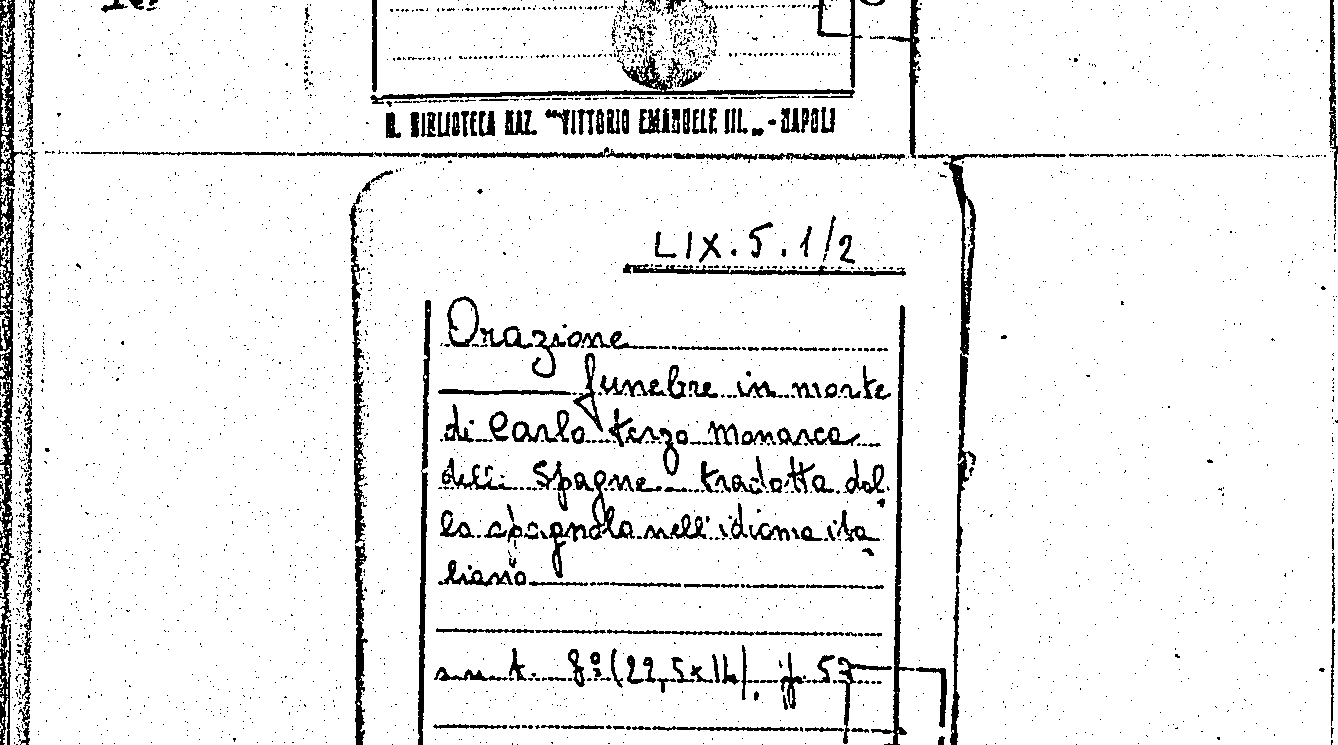 R. BIBLIOTECA NAZ. "VITTORIO EMANUELE III." - NAPOLI
LIX.5.1/2
Orazione
funebre in morte
di Carlo terzo Monarca
delle Spagne tradotta dal
la spagnola nell'idioma ita
liano
8º (22,5x16). ff. 57